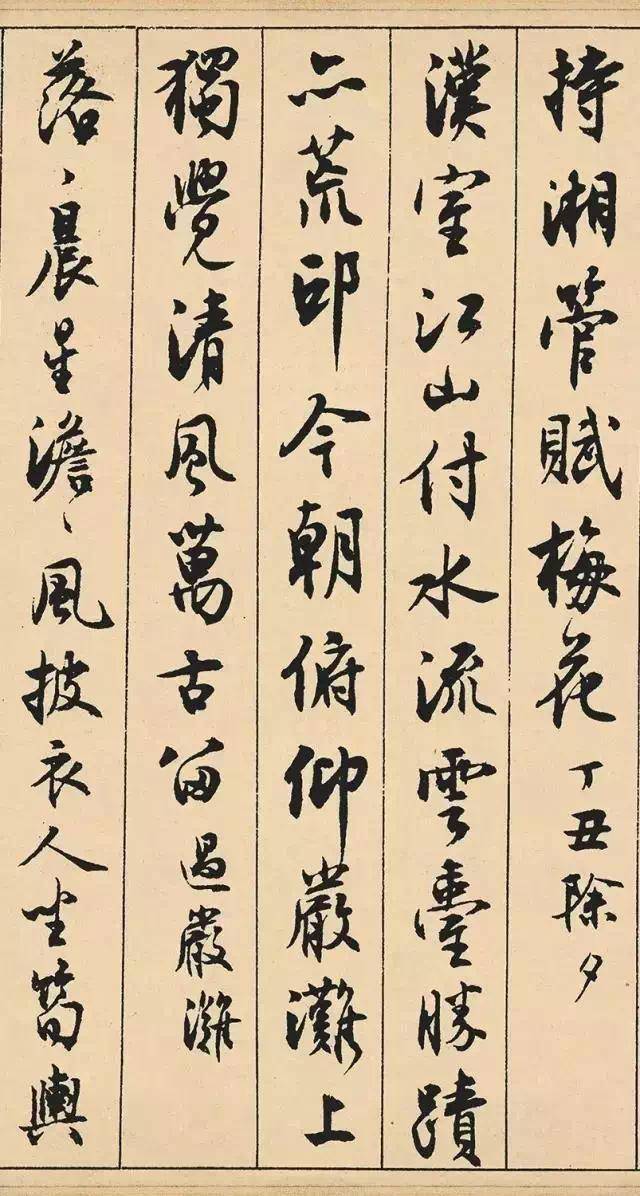 持湘管賦梅花 丁丑除夕
漢室江山付水流雲臺勝蹟
亦荒邱今朝俯仰嚴灘上
獨覺清風萬古留 過嚴灘
落〻晨星澹〻風披衣人坐筍輿